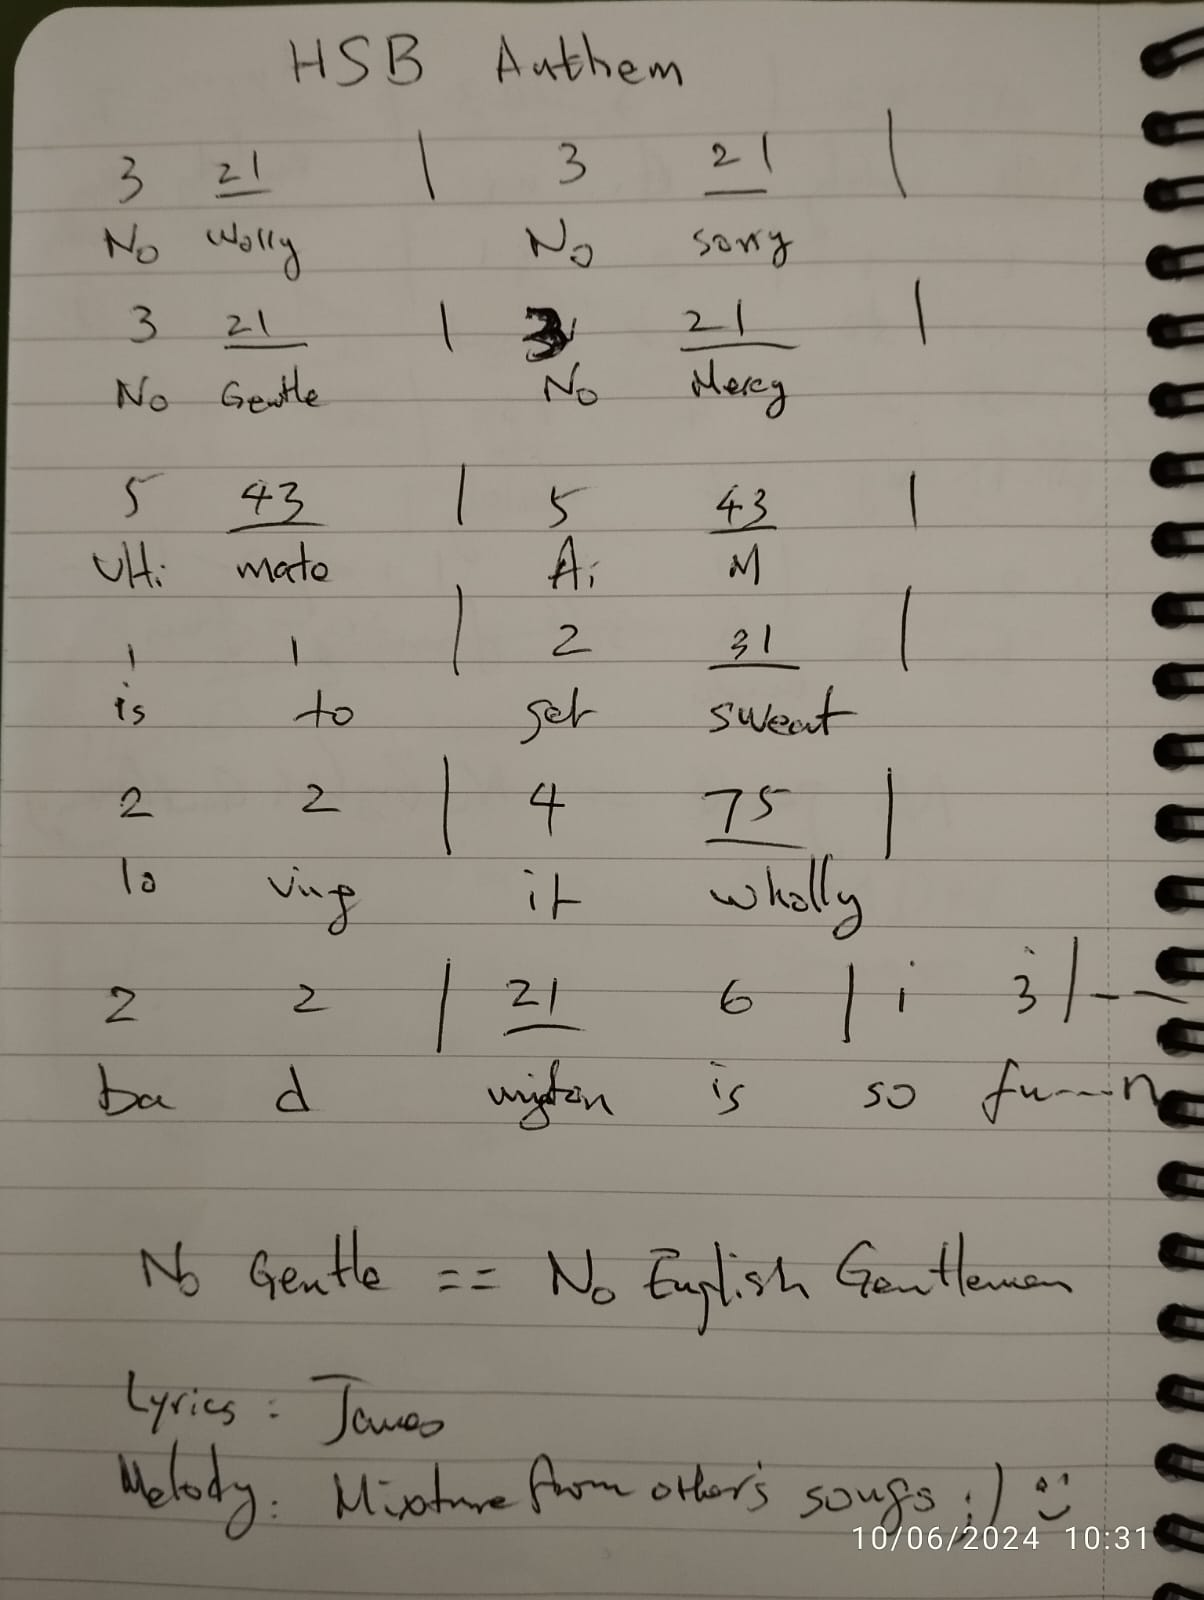 HSB Anthem
3 21 | 3 21 |
No Wolly No sorry
3 21 | 3 21 |
No Gentle No Mercy
5 43 | 5 43 |
Ulti mate Ai M
1 1 | 2 31 |
is to get sweat
2 2 | 4 75 |
lo ving it wholly
2 2 | 21 6 | i 3 | - -
ba d is so fu----n
No Gentle == No English Gentleman
Lyrics: James
Melody: Mixture from other's songs :) ☺
10/06/2024 10:31